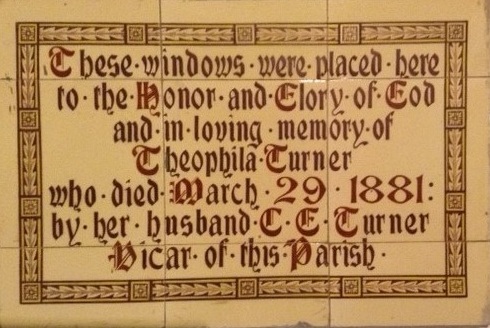 These·windows·were·placed·here
to·the·Honor·and·Glory·of·God
and·in·loving·memory·of
Theophila·Turner
who·died·March·29·1881:
by·her·husband·C·E·Turner
Vicar·of·this·Parish·